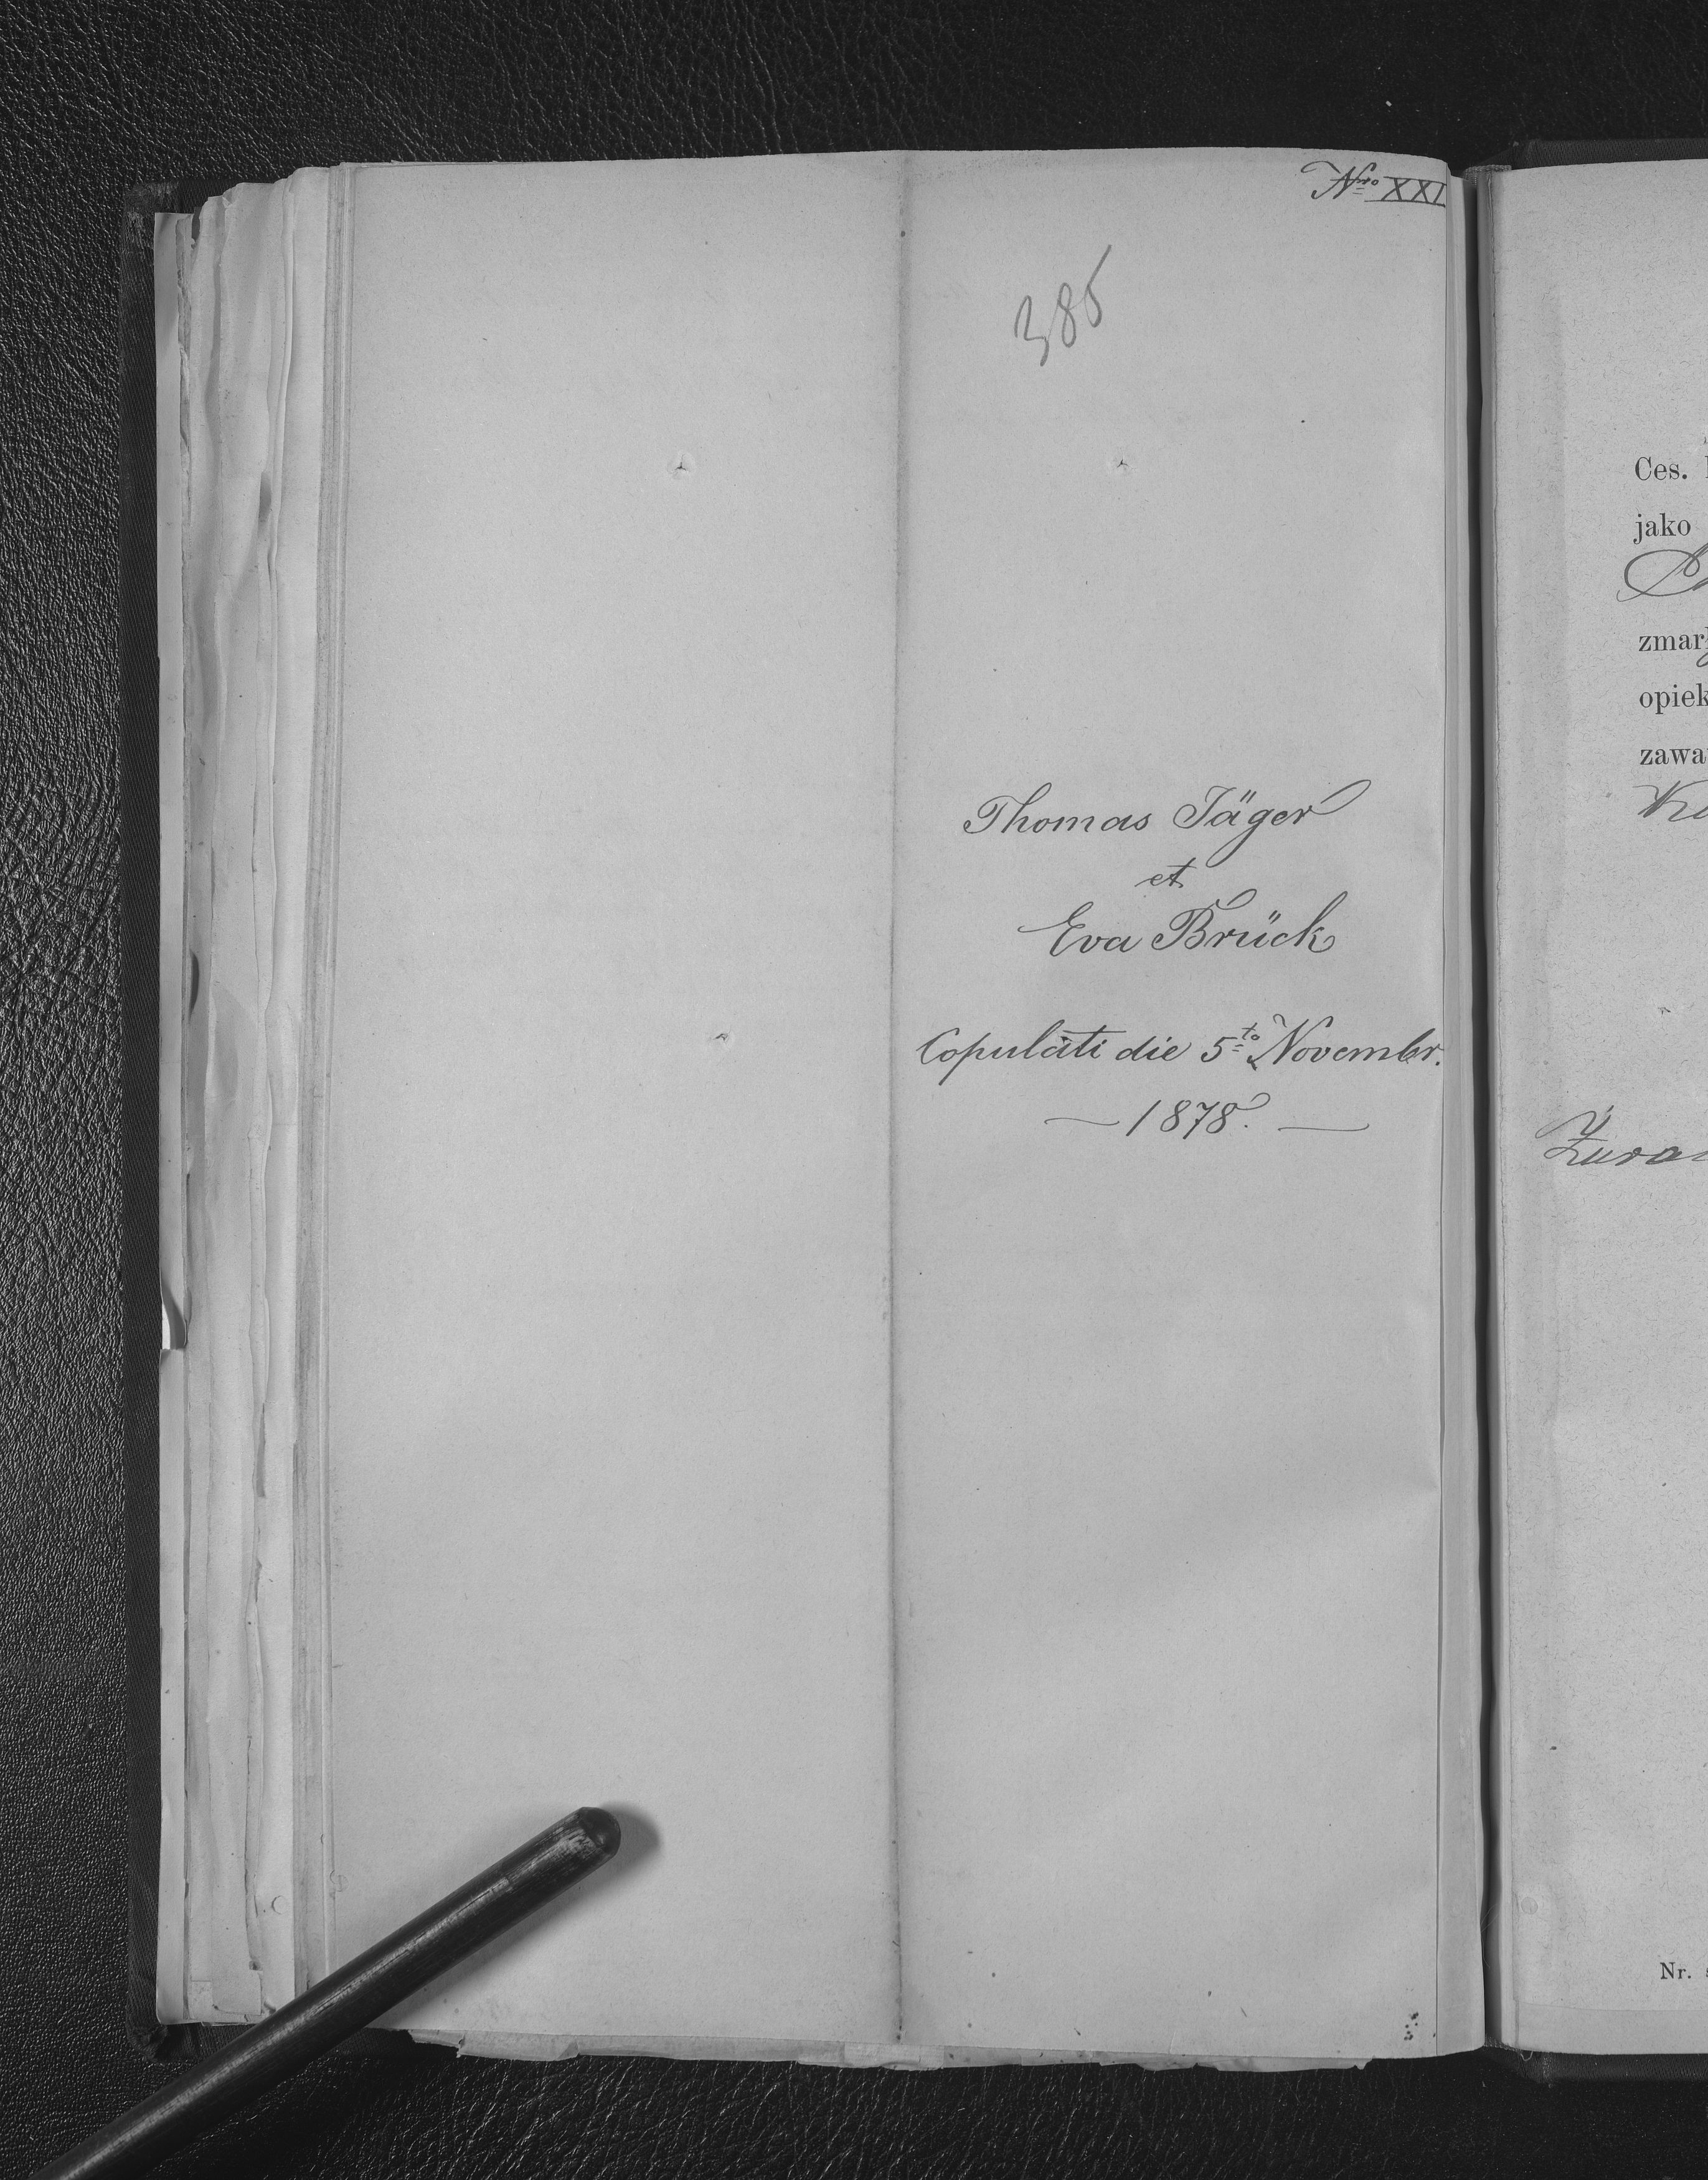 Nro XXI
386
Thomas Jäger
et
Eva Brück
Copulati die 5to Novembr.
— 1878. —
Ces.
jako
zmar
opiek
zawa
Nr.